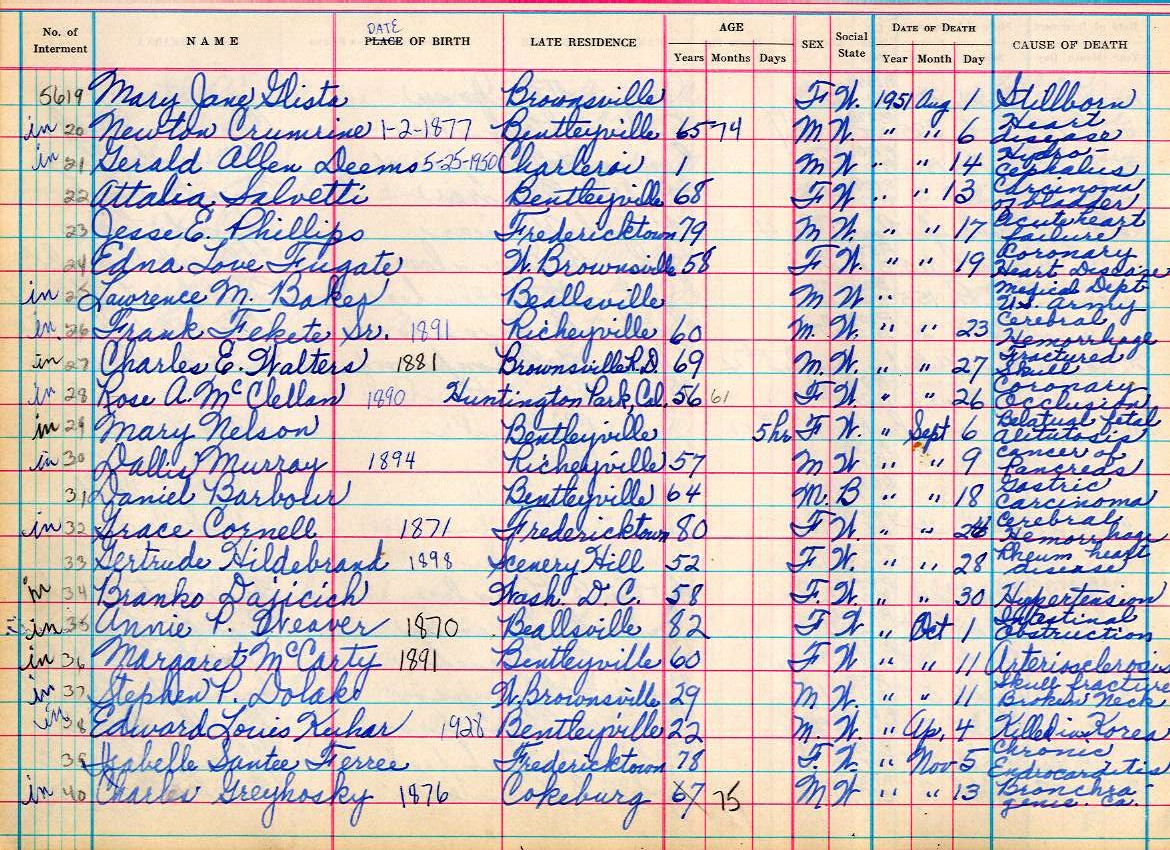 No. of Interment NAME DATE PLACE OF BIRTH LATE RESIDENCE AGE Years Months Days SEX Social State DATE OF DEATH Year Month Day CAUSE OF DEATH
5619 Mary Jane Glista Brownsville F W. 1951 Aug 1 Stillborn
in 20 Newton Crumrine 1-2-1877 Bentleyville 65 74 M W. " " 6 Heart disease
in 21 Gerald Allen Deems 5-25-1950 Charleroi 1 M W. " " 14 Hydro-cephalus
22 Attalia Salvetti Bentleyville 68 F W. " " 13 Carcinoma of bladder
23 Jesse E. Phillips Fredericktown 79 M W. " " 17 Acute heart failure
24 Edna Love Fugate W. Brownsville 58 F W. " " 19 Coronary Heart Disease
in 25 Lawrence M. Baker Beallsville M W " Medical Dept U.S. Army
in. 26 Frank Fekete Sr. 1891 Richeyville 60 M. W. " " 23 Cerebral Hemorrhage
in 27 Charles E. Walters 1881 Brownsville R.D. 69 M. W. " " 27 Fractured Skull
in 28 Rose A. McClellan 1890 Huntington Park, Cal. 56 61 F W. " " 26 Coronary Occlusion
in 29 Mary Nelson Bentleyville 5 hr F W. " Sept 6 fetal
in 30 Dallis Murray 1894 Richeyville 57 M W. " " 9 Cancer of Pancreas
31 Daniel Barbour Bentleyville 64 M. B " " 18 Gastric Carcinoma
in 32 Grace Cornell 1871 Fredericktown 80 F W. " " Cerebral Hemorrhage
33 Gertrude Hildebrand 1898 Scenery Hill 52 F. W. " " 28 Rheum heart disease
in 34 Branko Dajicich Wash. D.C. 58 F. W. " " 30 Hypertension
in 35 Annie P. Weaver 1870 Beallsville 82 F W " Oct 1 Intestinal Obstruction
in 36 Margaret McCarty 1891 Bentleyville 60 F W " " 11 Arteriosclerosis
in 37 Stephen P. Dolak W. Brownsville 29 M W. " " 11 Skull fracture Broken Neck
in 38 Edward Louis Kuhar 1928 Bentleyville 22 M. W. " Ap. 4 Killed in Korea
39 Isabelle Santee Ferree Fredericktown 78 F. W. " Nov 5 Chronic Endrocarditis
in 40 Charles Greyhosky 1876 Cokeburg 67 75 M W " " 13 Bronchra-genic. Ca.